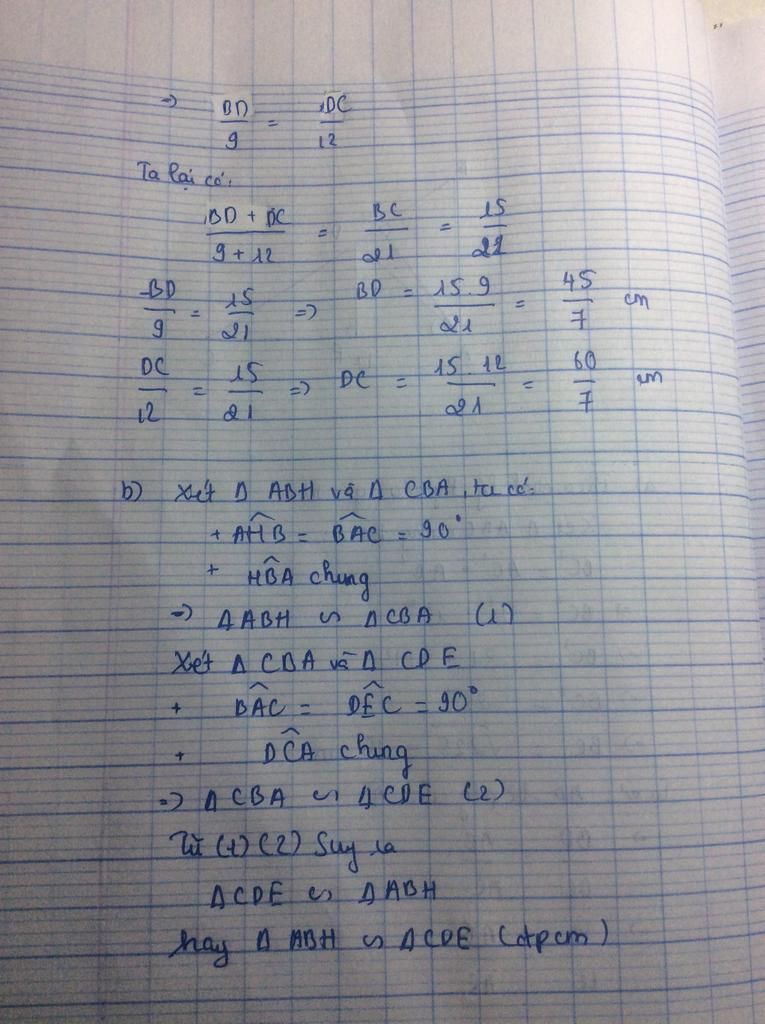 => BD/9 = DC/12
Ta lại có:
BD + DC / 9 + 12 = BC/21 = 15/21
BD/9 = 15/21 => BD = 15.9/21 = 45/7 cm
DC/12 = 15/21 => DC = 15.12/21 = 60/7 cm
b) Xét Δ ABH và Δ CBA, ta có:
+ AĤB = BÂC = 90°
+ HB̂A chung
=> ΔABH ∽ ΔCBA (1)
Xét Δ CBA và Δ CDE
+ BÂC = DÊC = 90°
+ DĈA chung
=> Δ CBA ∽ Δ CDE (2)
Từ (1) (2) Suy ra
ΔCDE ∽ ΔABH
hay Δ ABH ∽ ΔCDE (đpcm)